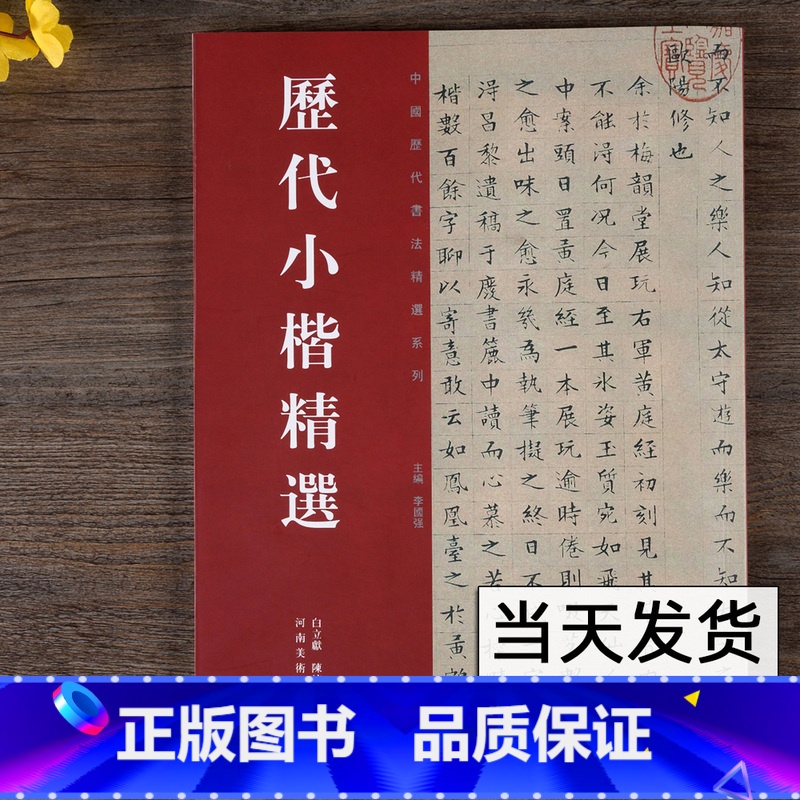 歷代小楷精選
中國歷代書法精選系列
主編 李國强
白立獻 陳
河南美術
而不知人之樂人知從太守遊而樂而不知
歐陽修也
余於梅韻堂展玩右軍黃庭經初刻見其
不能淂何况今日至其氷姿玉質宛如飛
中案頭日置黃庭經一本展玩逾時倦則
之愈出味之愈永幾為執筆擬之終日不
淂昌黎遺稿于廢書簏中讀而心慕之苦
楷數百餘字聊以寄意敢云如鳳凰臺之於黃
当天发货
正版图书 品质保证